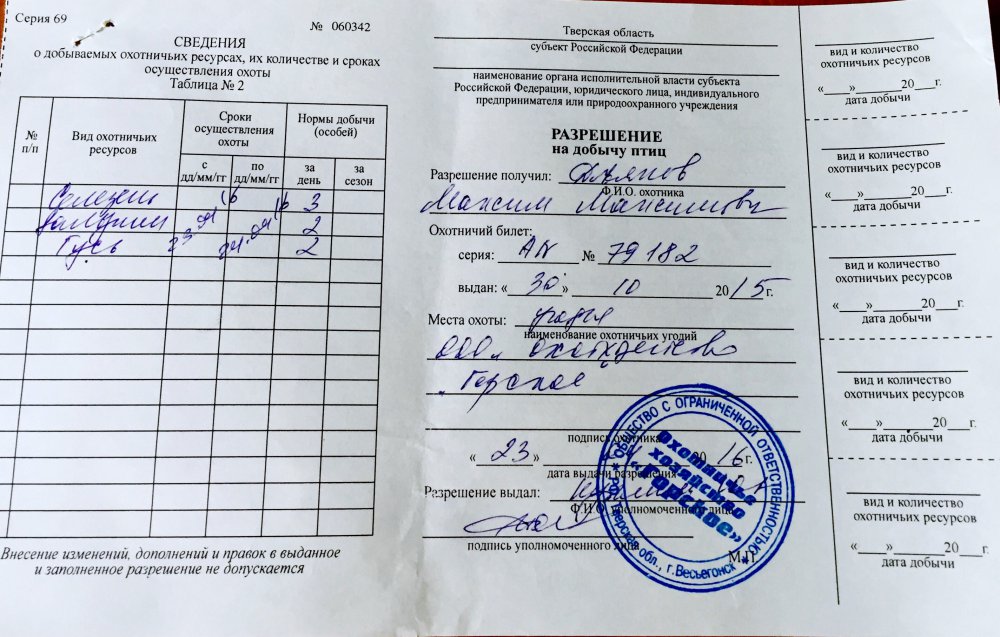 Серия 69
№ 060342
СВЕДЕНИЯ
о добываемых охотничьих ресурсах, их количестве и сроках
осуществления охоты
Таблица № 2
№ п/п
Вид охотничьих ресурсов
Сроки осуществления охоты
Нормы добычи (особей)
с дд/мм/гг
по дд/мм/гг
за день
за сезон
Селезень 16 16 3
Вальдшнеп 2
Гусь 23.04 24.04 2
Внесение изменений, дополнений и правок в выданное
и заполненное разрешение не допускается
Тверская область
субъект Российской Федерации
наименование органа исполнительной власти субъекта
Российской Федерации, юридического лица, индивидуального
предпринимателя или природоохранного учреждения
РАЗРЕШЕНИЕ
на добычу птиц
Разрешение получил:
Ф.И.О. охотника
Максим Максимович
Охотничий билет:
серия: АN № 79182
выдан: « 30 » 10 2015 г.
Места охоты: угодья
наименование охотничьих угодий
ООО „
Горское"
подпись охотника
« 23 » 2016 г.
дата выдачи разрешения
Разрешение выдал:
Ф.И.О. уполномоченного лица
подпись уполномоченного лица
М.П.
ОБЩЕСТВО С ОГРАНИЧЕННОЙ ОТВЕТСТВЕННОСТЬЮ
Охотничье
хозяйство
«ГОРСКОЕ»
Тверская обл., г.Весьегонск
вид и количество
охотничьих ресурсов
«___»______20___г.
дата добычи
вид и количество
охотничьих ресурсов
«___»______20___г.
дата добычи
вид и количество
охотничьих ресурсов
«___»______20___г.
дата добычи
вид и количество
охотничьих ресурсов
«___»______20___г.
дата добычи
вид и количество
охотничьих ресурсов
«___»______20___г.
дата добычи